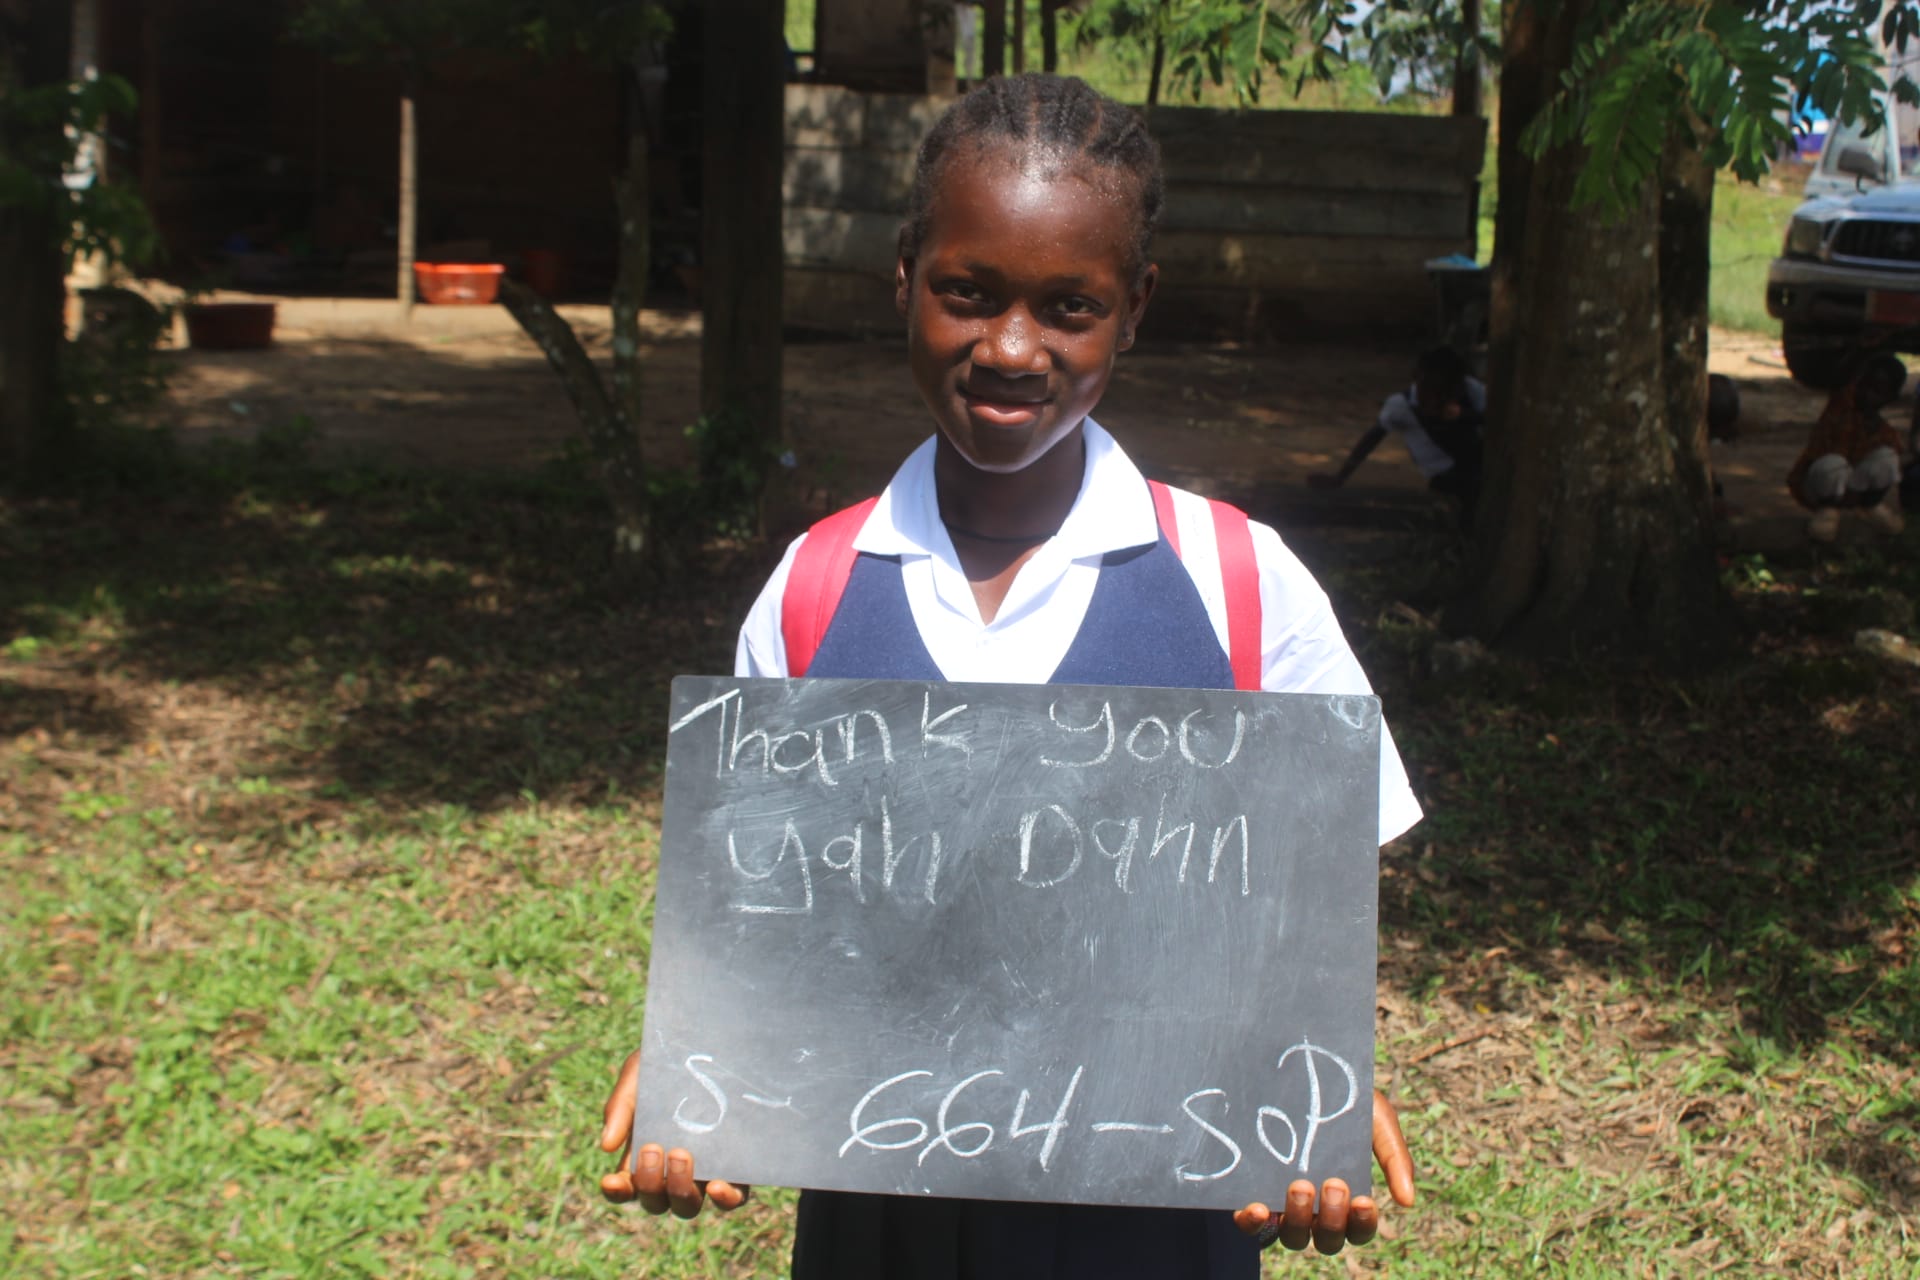 Thank you
Yah Dahn
S-664-SOP